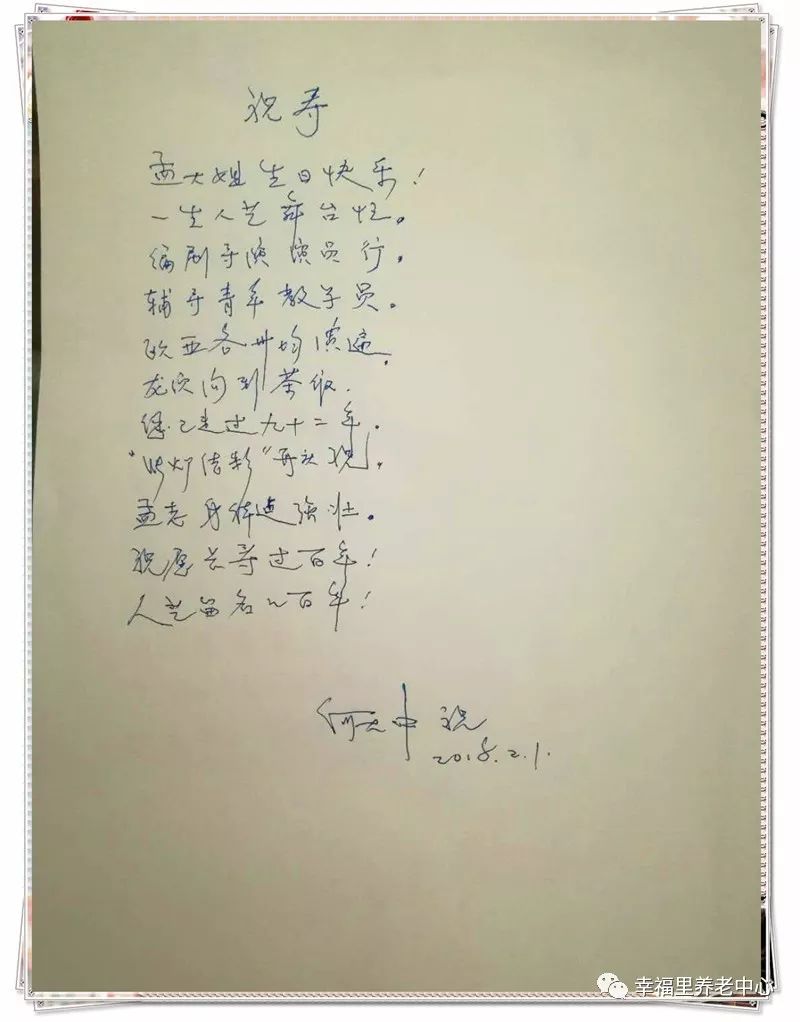 祝寿
孟大姐生日快乐！
一生人艺舞台忙。
编剧导演演员行。
辅导青年教学员。
欧亚各州均演遍。
龙须沟到茶馆.
已走过九十二年.
再次祝。
孟老身体健强壮。
祝愿长寿过百年！
人艺留名
百年！
何 中 祝
2018.2.1.
幸福里养老中心